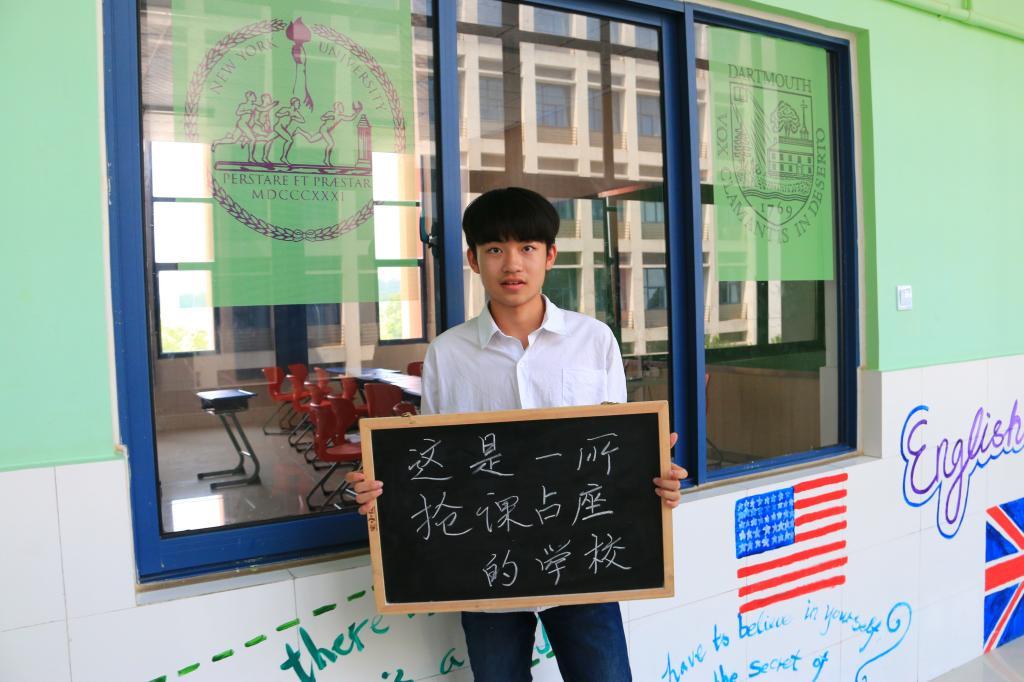 NEW YORK UNIVERSITY
PERSTARE ET PRÆSTAR
MDCCCXXXI
DARTMOUTH
VOX CLAMANTIS IN DESERTO
1769
这是一所
抢课占座
的学校
English
there
is a
have to believe in yourself
the secret of